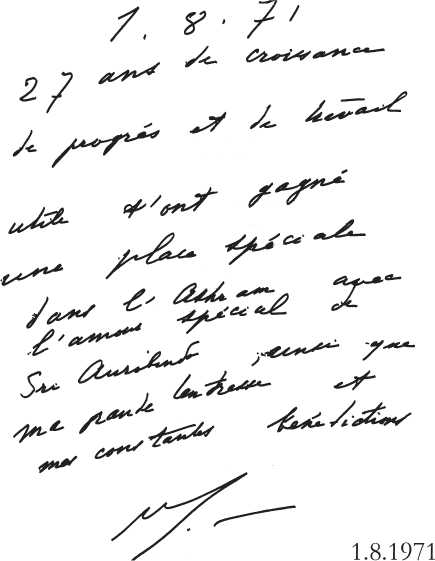 1.8.71
27 ans de croissance
de progrès et de travail
utile t'ont gagné
une place spéciale
dans l'Ashram avec
l'amour spécial de
Sri Aurobindo, ainsi que
ma grande tendresse et
mes constantes bénédictions
1.8.1971